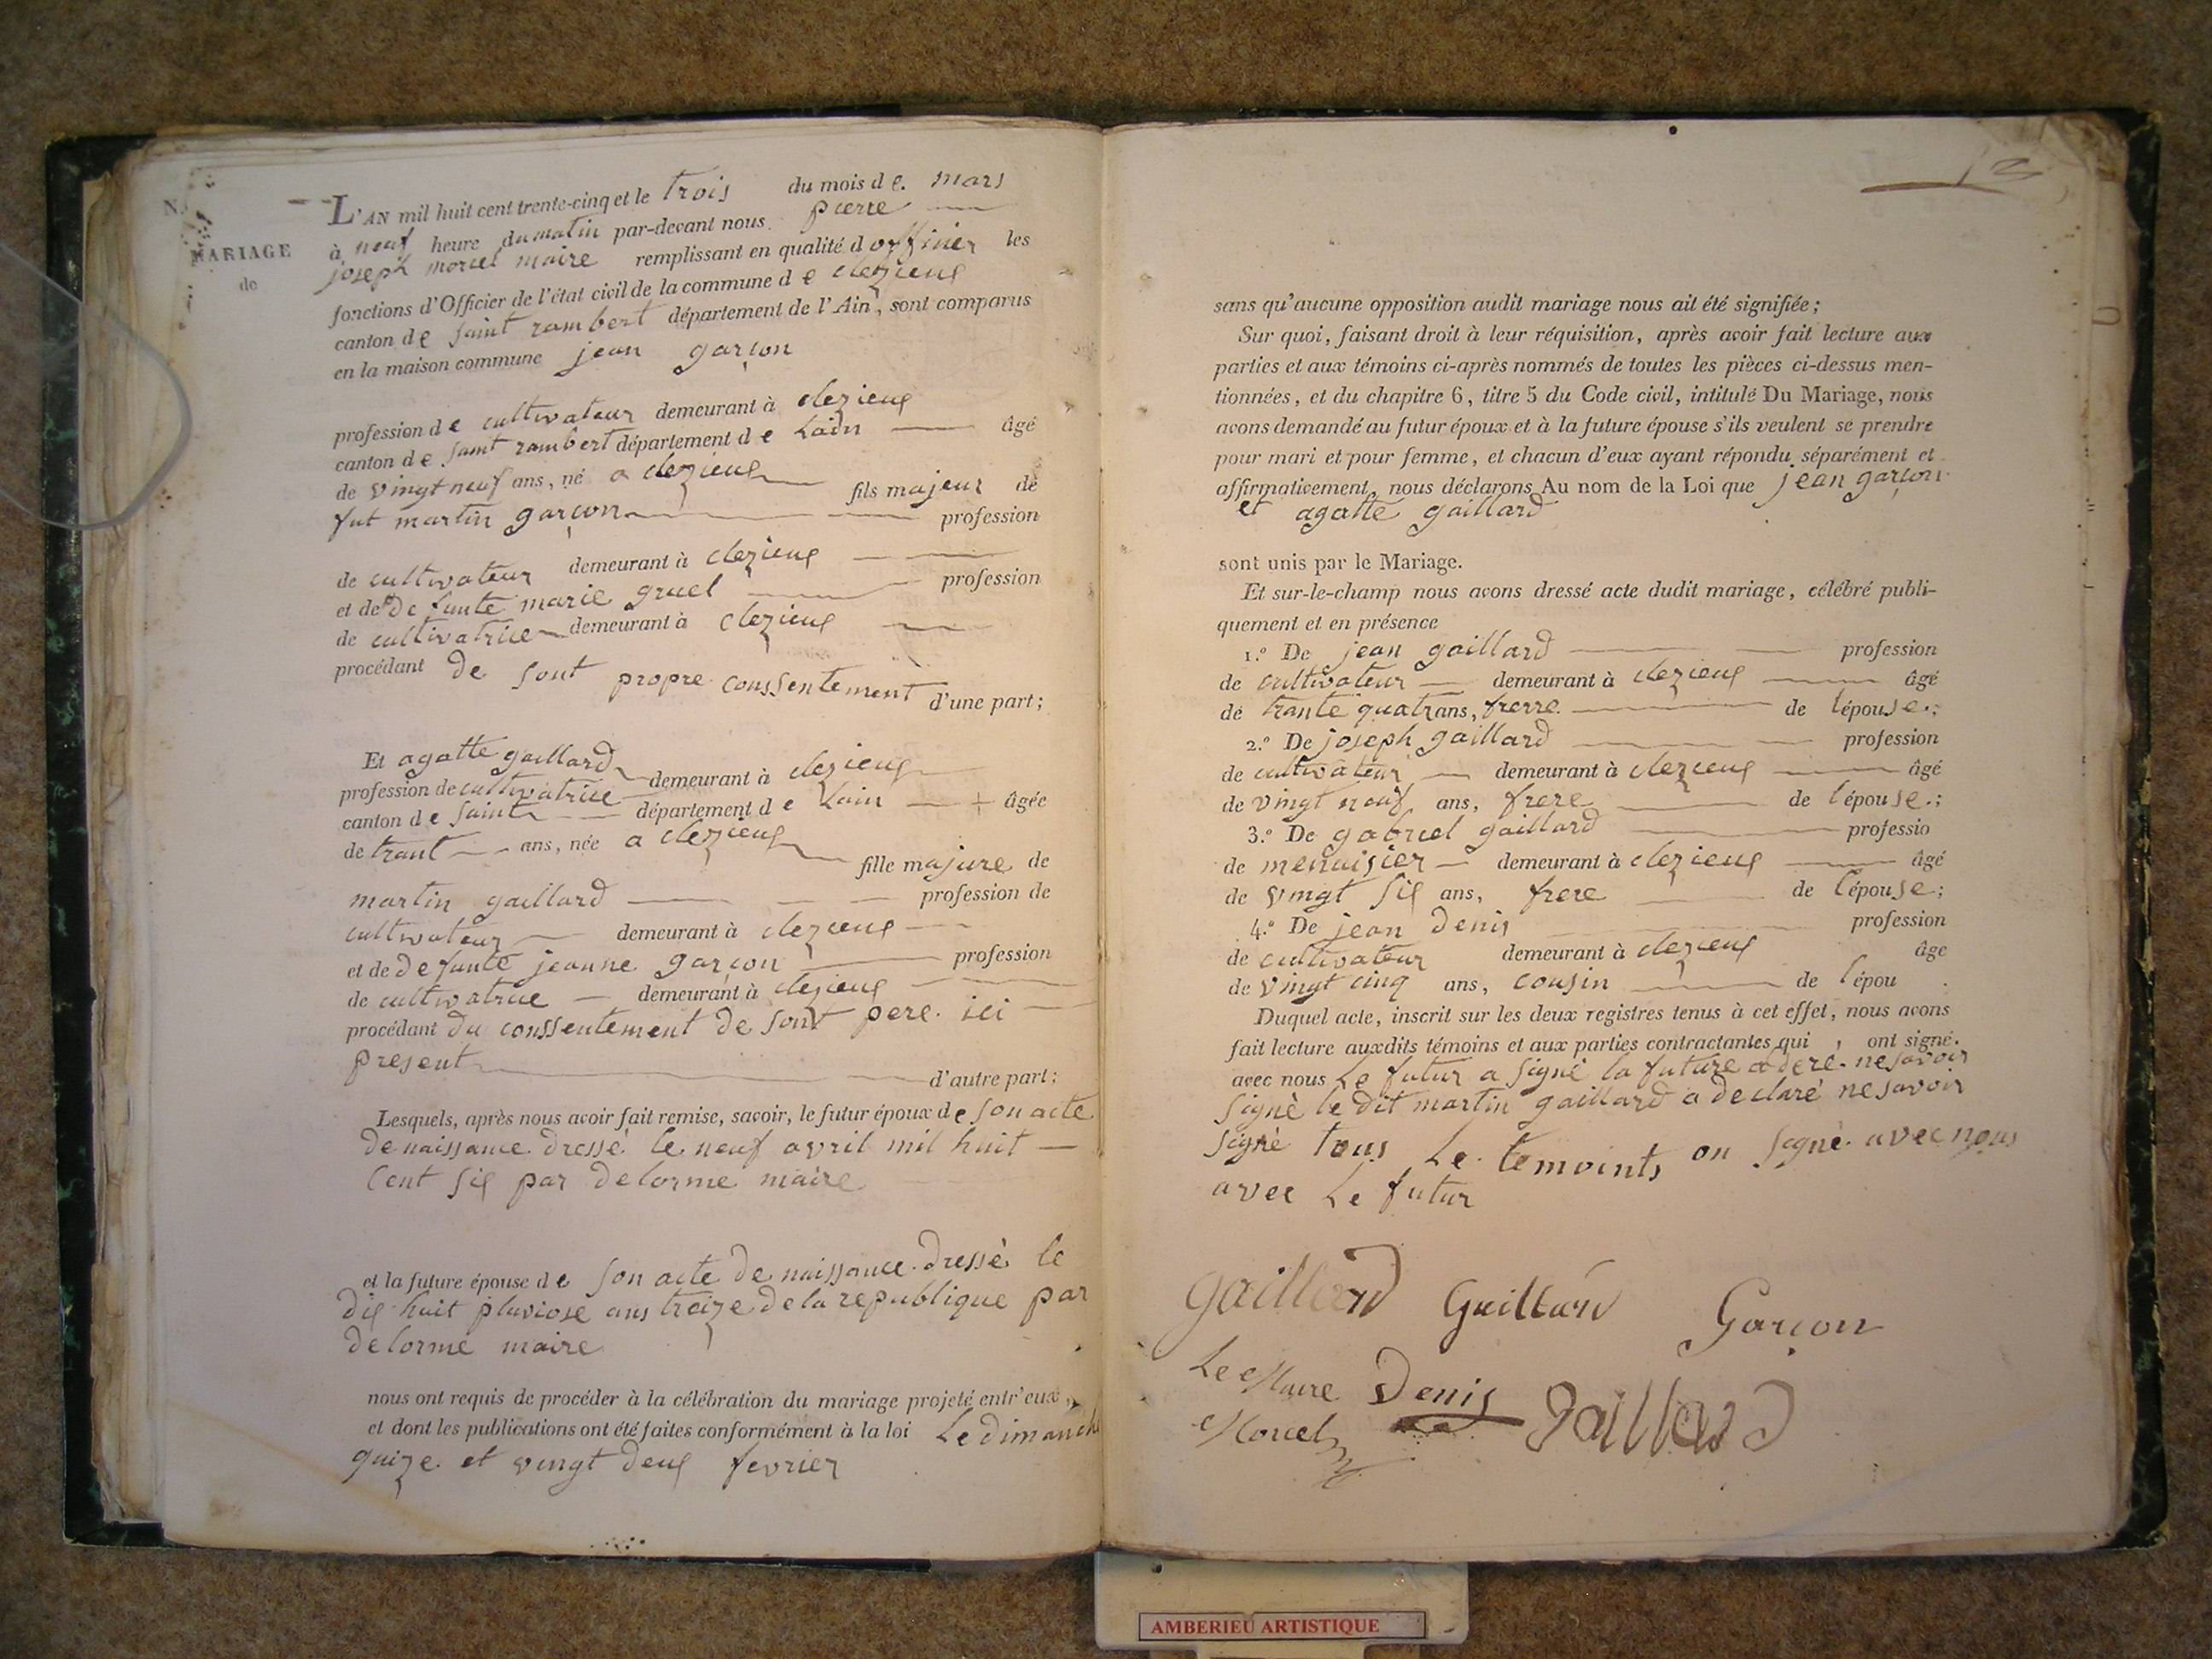 N.
MARIAGE
de
L'AN mil huit cent trente-cinq et le trois du mois de. mars
à neuf heure du matin par-devant nous. pierre
joseph morcel maire remplissant en qualité d offisier les
fonctions d'Officier de l'état civil de la commune d e clezieux
canton de saint rambert département de l'Ain, sont comparus
en la maison commune jean garçon
profession d e cultivateur demeurant à clezieux
canton de saint rambert département d e Lain âgé
de vingt neuf ans, né a clezieux fils majeur de
fut martin garçon profession
de cultivateur demeurant à clezieux
et de defunte marie gruel profession
de cultivatrice demeurant à clezieux
procédant de sont propre conssentement d'une part;
Et agatte gaillard
profession de cultivatrice demeurant à clezieux
canton d e saint département d e Lain + âgée
de trant ans, née a clezieux fille majure de
martin gaillard profession de
cultivateur demeurant à clezieux
et de defunte jeanne garçon profession
de cultivatrice demeurant à clezieux
procédant du conssentement de sont pere. ici
present d'autre part;
Lesquels, après nous avoir fait remise, savoir, le futur époux d e son acte
de naissance. dressé le neuf avril mil huit
cent six par delorme maire
et la future épouse d e son acte de naissance. dressé le
dix huit pluviose ans traize de la republique par
delorme maire
nous ont requis de procéder à la célébration du mariage projeté entr'eux,
et dont les publications ont été faites conformément à la loi Le dimanche
quize et vingt deux fevrier
sans qu'aucune opposition audit mariage nous ait été signifiée;
Sur quoi, faisant droit à leur réquisition, après avoir fait lecture aux
parties et aux témoins ci-après nommés de toutes les pièces ci-dessus men-
tionnées, et du chapitre 6, titre 5 du Code civil, intitulé Du Mariage, nous
avons demandé au futur époux et à la future épouse s'ils veulent se prendre
pour mari et pour femme, et chacun d'eux ayant répondu séparément et
affirmativement, nous déclarons Au nom de la Loi que jean garçon
et agatte gaillard
sont unis par le Mariage.
Et sur-le-champ nous avons dressé acte dudit mariage, célébré publi-
quement et en présence
1.° De jean gaillard profession
de cultivateur demeurant à clezieux âgé
de trante quatr ans, frerre. de l'épouse.;
2.° De joseph gaillard profession
de cultivateur demeurant à clezieux âgé
de vingt neuf ans, frere de l'épouse.;
3.° De gabriel gaillard professio
de menuisier demeurant à clezieux âgé
de vingt six ans, frere de l'épouse;
4.° De jean denis profession
de cultivateur demeurant à clezieux âge
de vingt cinq ans, cousin de l'épou
Duquel acte, inscrit sur les deux registres tenus à cet effet, nous avons
fait lecture auxdits témoins et aux parties contractantes qui, ont signé.
avec nous Le futur a signé la future ne savoir
signè le dit martin gaillard a declaré ne savoir
signè tous Le. temoints on signè. avec nous
avec Le futur
gaillard Gaillard Garçon
Le Maire Denis Gaillard
Morcel
AMBERIEU ARTISTIQUE